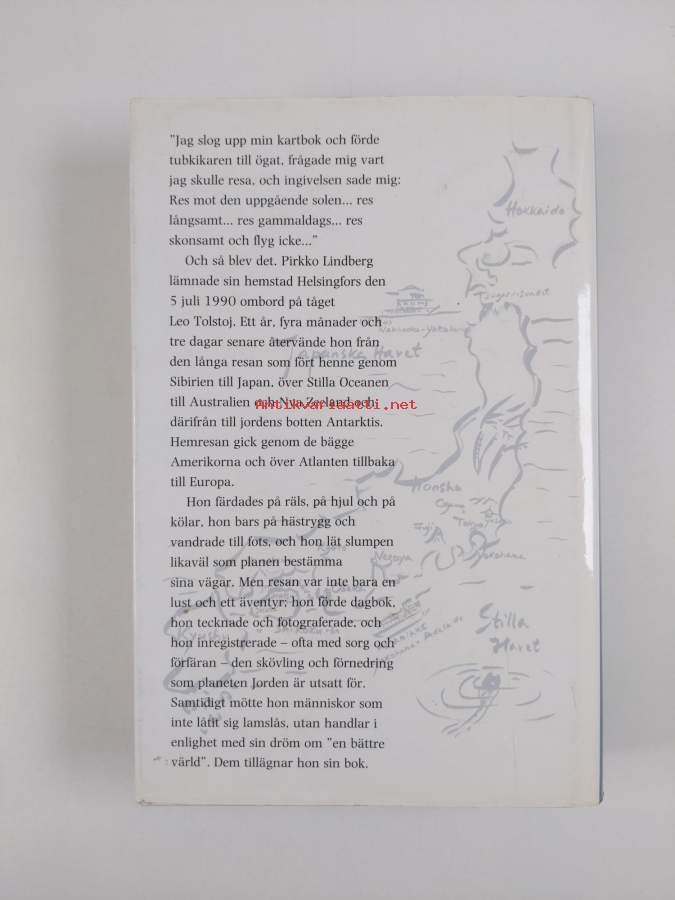 "Jag slog upp min kartbok och förde
tubkikaren till ögat, frågade mig vart
jag skulle resa, och ingivelsen sade mig:
Res mot den uppgående solen... res
långsamt... res gammaldags... res
skonsamt och flyg icke..."
Och så blev det. Pirkko Lindberg
lämnade sin hemstad Helsingfors den
5 juli 1990 ombord på tåget
Leo Tolstoj. Ett år, fyra månader och
tre dagar senare återvände hon från
den långa resan som fört henne genom
Sibirien till Japan, över Stilla Oceanen
till Australien och Nya Zeeland och
därifrån till jordens botten Antarktis.
Hemresan gick genom de bägge
Amerikorna och över Atlanten tillbaka
till Europa.
Hon färdades på räls, på hjul och på
kölar, hon bars på hästrygg och
vandrade till fots, och hon lät slumpen
likaväl som planen bestämma
sina vägar. Men resan var inte bara en
lust och ett äventyr; hon förde dagbok,
hon tecknade och fotograferade, och
hon inregistrerade – ofta med sorg och
förfäran – den skövling och förnedring
som planeten Jorden är utsatt för.
Samtidigt mötte hon människor som
inte låtit sig lamslås, utan handlar i
enlighet med sin dröm om "en bättre
värld". Dem tillägnar hon sin bok.
antikvariaatti.net
Hokkaido
Japanska Havet
Honshu
Fuji
Nagoya
Yokohama
Kyushu
Stilla
Havet